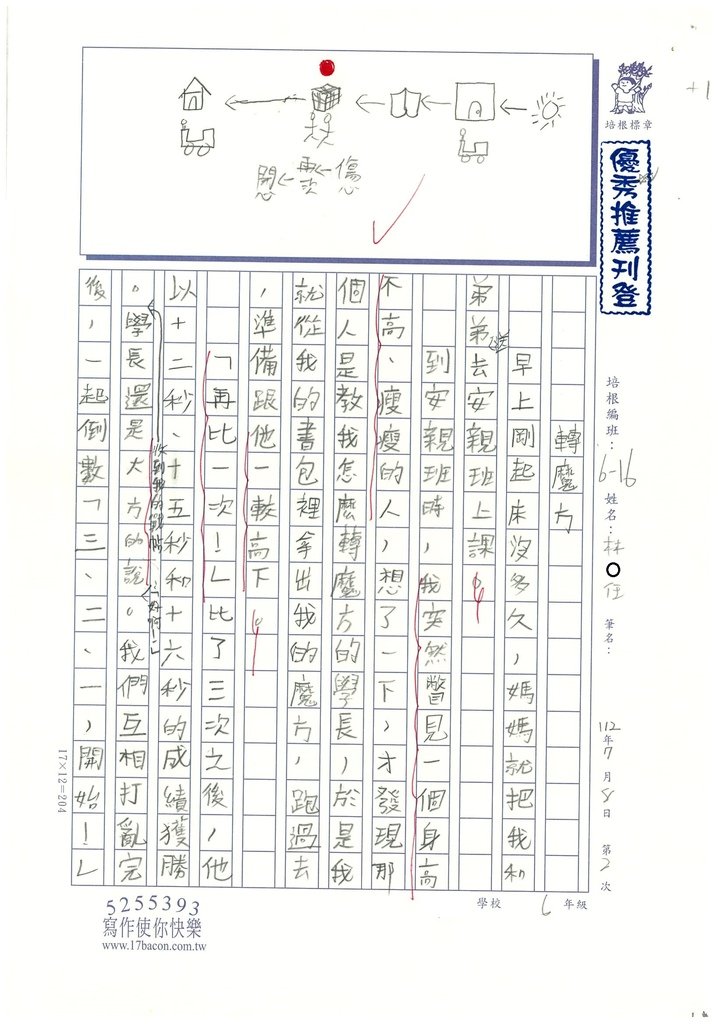 培根標章
+1
優秀推薦刊登
培根編班：6-16
姓名：林○佢
筆名：
112年7月8日 第2次
學校 6年級
傷心←再次←開心
轉魔方
早上剛起床沒多久，媽媽就把我和
弟弟送去安親班上課。
到安親班時，我突然瞥見一個身高
不高、瘦瘦的人，想了一下，才發現那
個人是教我怎麼轉魔方的學長，於是我
就從我的書包裡拿出我的魔方，跑過去
，準備跟他一較高下。
「再比一次！」比了三次之後，他
以十二秒、十五秒和十六秒的成績獲勝
收到我的戰帖
：「好啊！」
。學長還是大方的說。我們互相打亂完
後，一起倒數「三、二、一，開始！」
17×12=204
5255393
寫作使你快樂
www.17bacon.com.tw